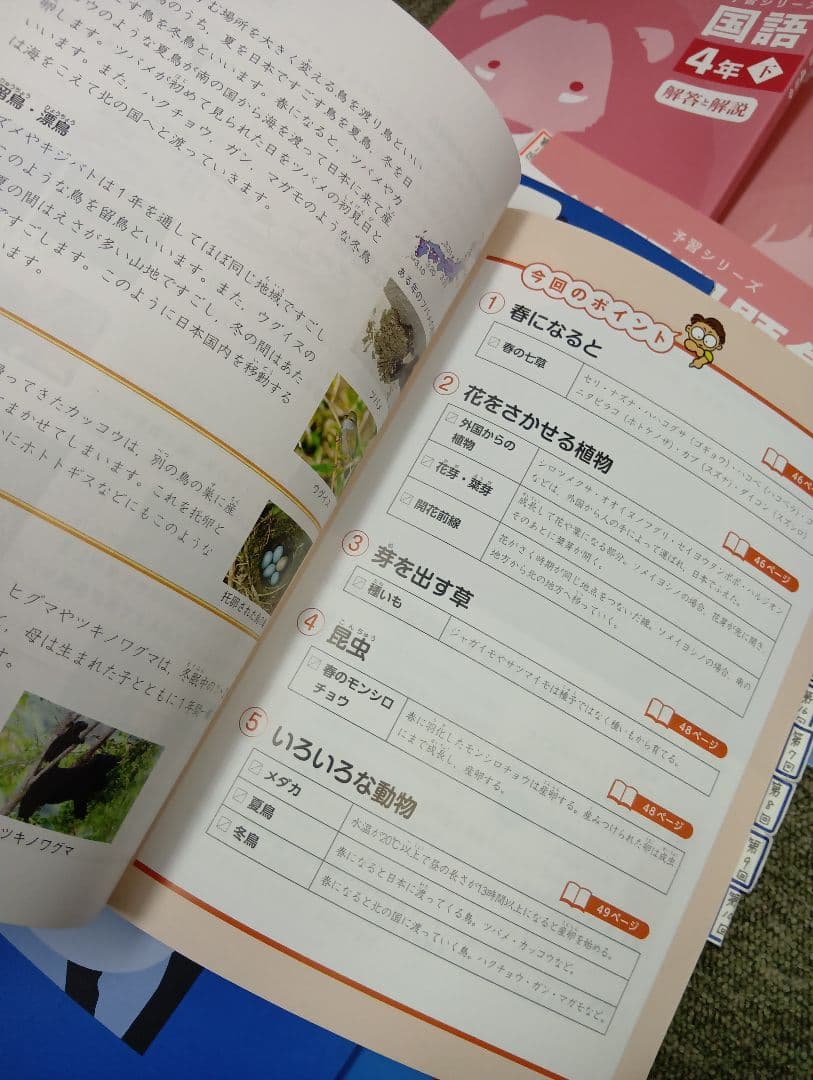 む場所を大きく変える鳥を渡り鳥といい
鳥のうち、夏を日本ですごす鳥を夏鳥、冬を日
すごす鳥を冬鳥といいます。春になると、ツバメやカ
ウのような夏鳥が南の国から海を渡って日本に来て産
卵します。ツバメが初めて見られた日をツバメの初見日と
いいます。また、ハクチョウ、ガン、マガモのような冬鳥
は海をこえて北の国へと渡っていきます。
留鳥・漂鳥
ズメやキジバトは1年を通してほぼ同じ地域ですごし
このような鳥を留鳥といいます。また、ウグイスの
夏の間はえさが多い山地ですごし、冬の間はあた
ですごします。このように日本国内を移動する
います。
ってきたカッコウは、別の鳥の巣に産
まかせてしまいます。これを托卵と
にホトトギスなどにもこのような
ヒグマやツキノワグマは、冬眠中の
、母は生まれた子とともに1年
す。
ウグイス
托卵された
ツキノワグマ
今回のポイント
1 春になると
春の七草
セリ・ナズナ・ハハコグサ（ゴギョウ）・ハコベ（ハコベラ）・コ
ニタビラコ（ホトケノザ）・カブ（スズナ）・ダイコン（スズシロ）
46ページ
2 花をさかせる植物
外国からの
植物
シロツメクサ・オオイヌノフグリ・セイヨウタンポポ・ハルジオン
などは、外国から人の手によって運ばれ、日本でふえた。
花芽・葉芽
成長して花や葉になる部分。ソメイヨシノの場合、花芽が先に開き、
そのあとに葉芽が開く。
開花前線
花がさく時期が同じ地点をつないだ線。ソメイヨシノの場合、南の
地方から北の地方へ移っていく。
46ページ
3 芽を出す草
種いも
ジャガイモやサツマイモは種子ではなく種いもから育てる。
48ページ
4 昆虫
こんちゅう
春のモンシロ
チョウ
春に羽化したモンシロチョウは産卵する。産みつけられた卵は成虫
にまで成長し、産卵する。
48ページ
5 いろいろな動物
メダカ
水温が20℃以上で昼の長さが13時間以上になると産卵を始める。
夏鳥
春になると日本に渡ってくる鳥。ツバメ・カッコウなど。
冬鳥
春になると北の国に渡っていく鳥。ハクチョウ・ガン・マガモなど。
49ページ
予習シリーズ
国語
4年 下
解答と解説
予習シリーズ
第7回
第8回
第9回